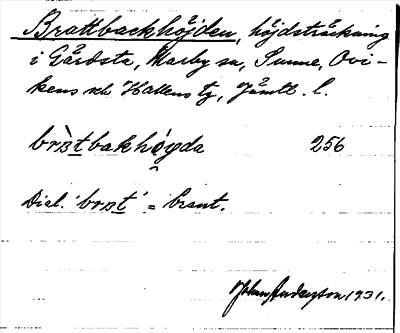 Brattbackhöjden, höjdsträckning
i Gärdsta, Marby sn, Sunne, Ovi-
kens och Hallens tg, Jämtl. l.
brɑ̀tbakhöyda 256
Dial. 'brɑt' = brant.
Johan Anderzson 1931.